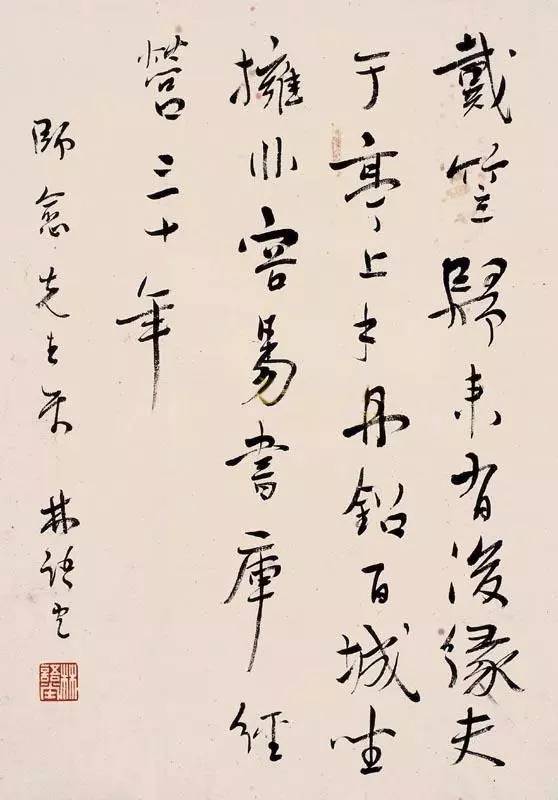 戴笠歸来有後緣夫
于亭上手丹鉛百城坐
擁非容易書庫經
營三十年
師先生 林語堂
林語堂